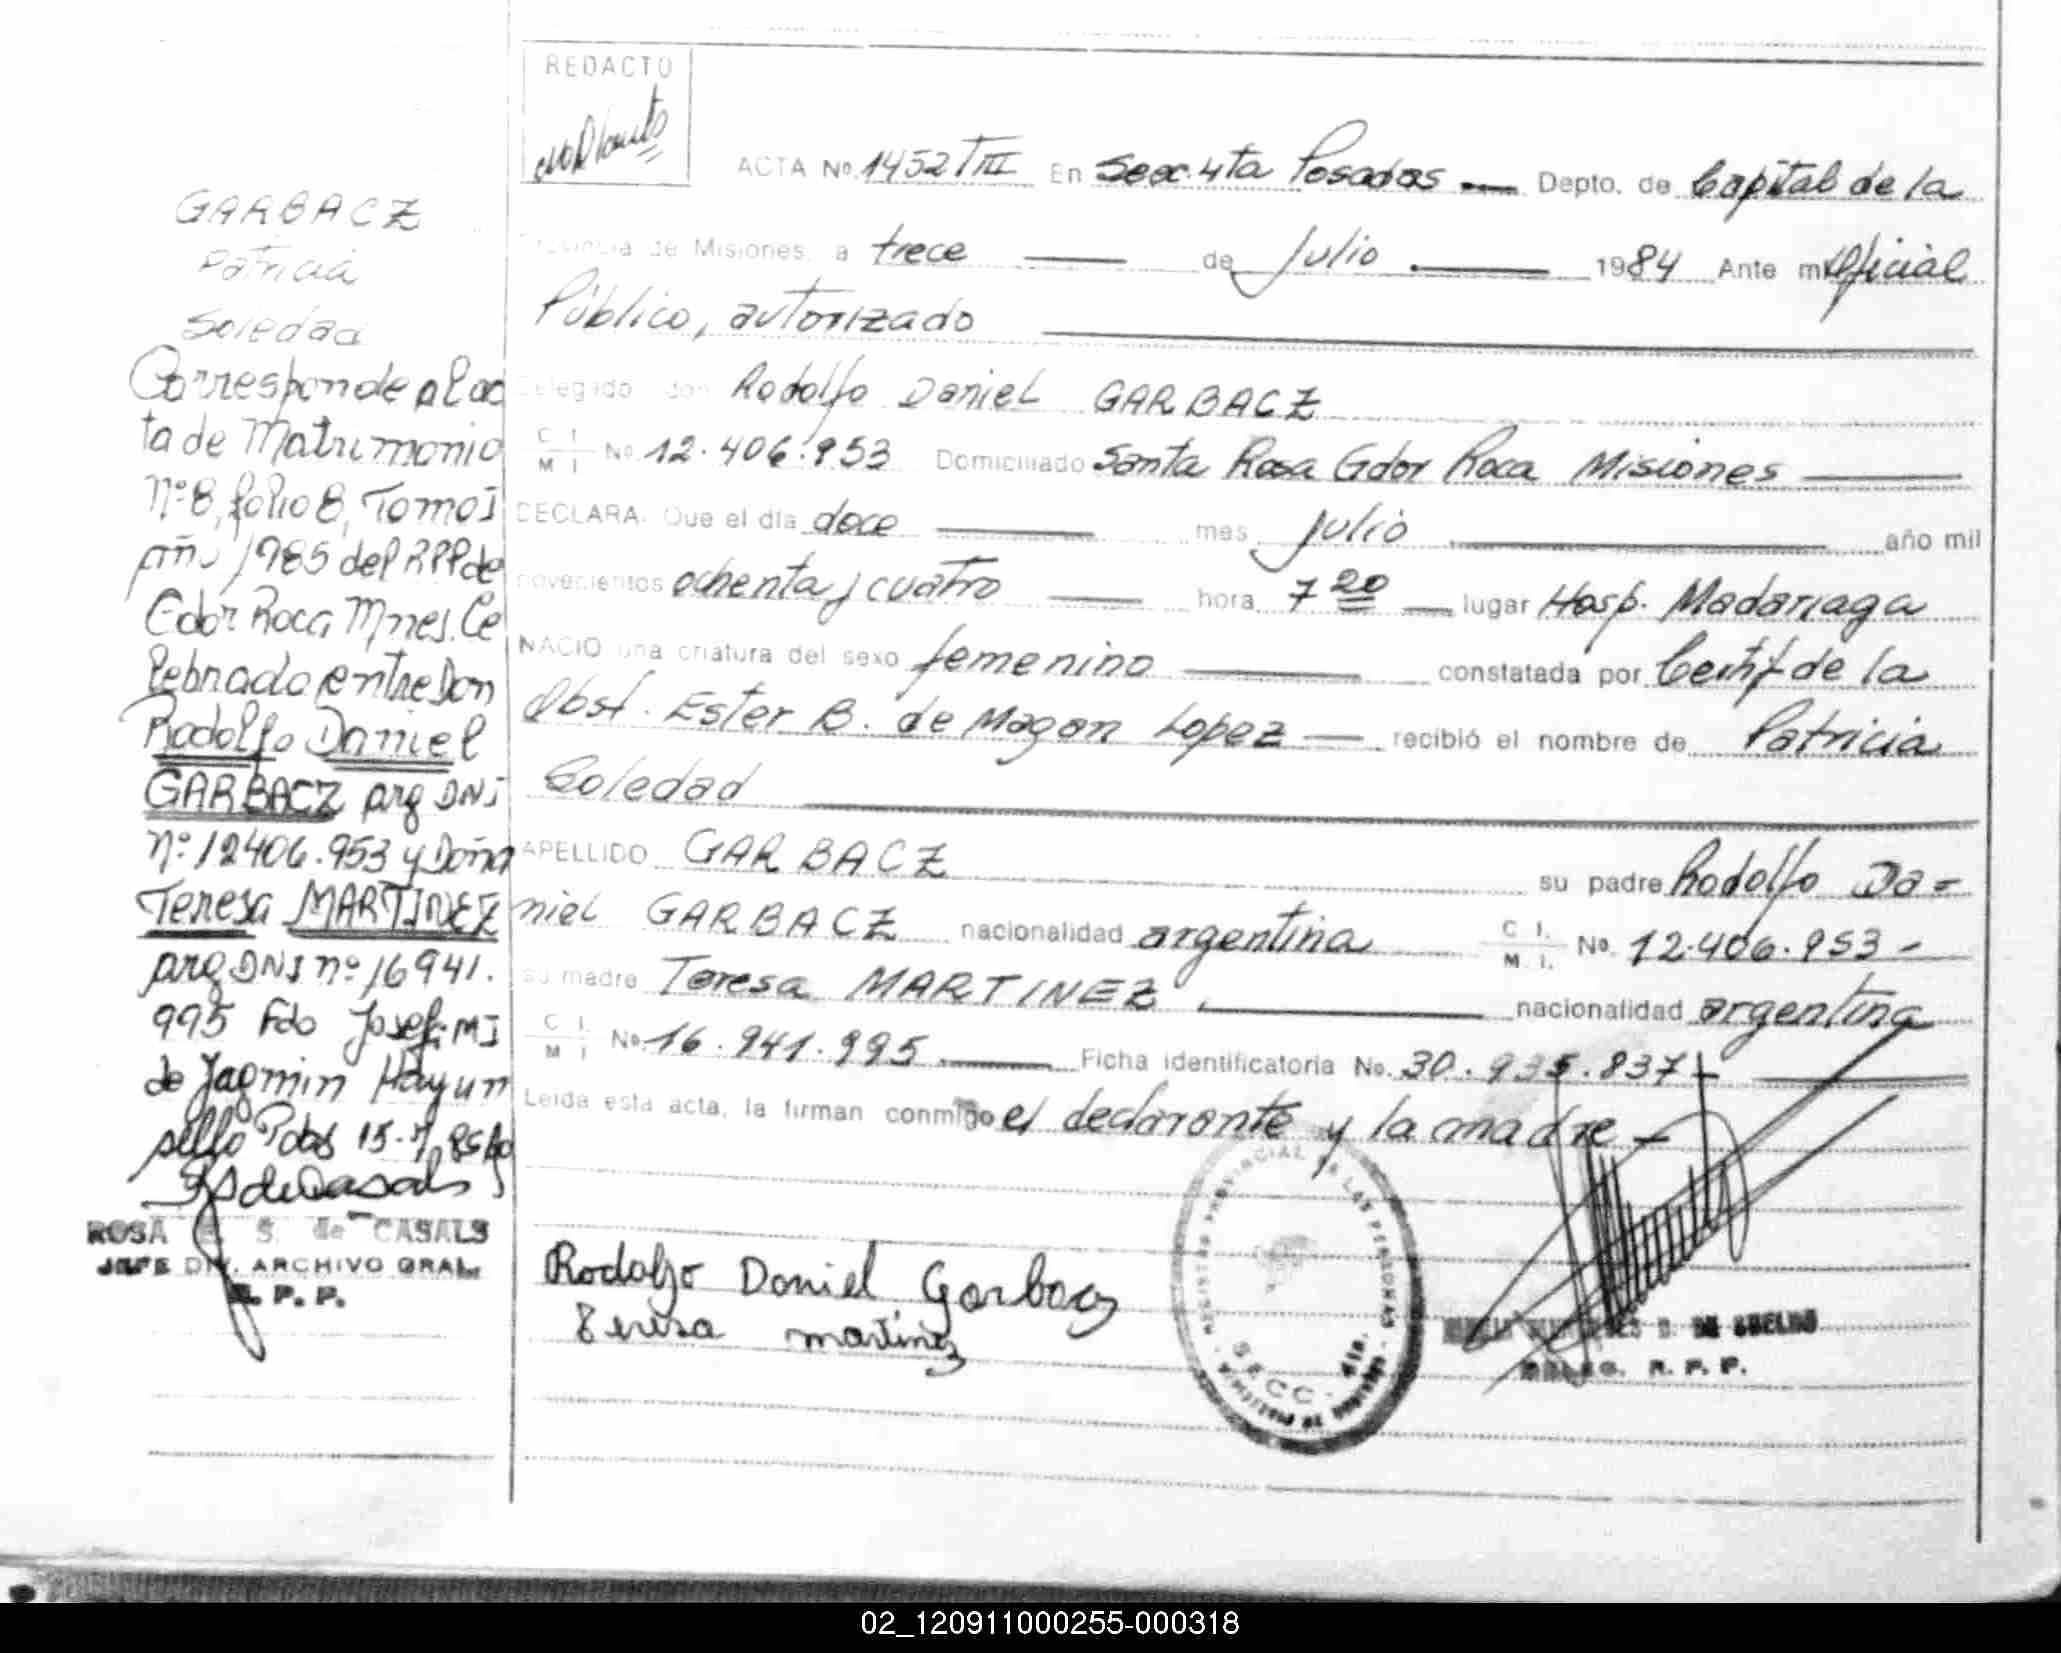 REDACTO
ACTA No. 1452 T III En Secc. 4ta Posadas Depto. de Capital de la
Provincia de Misiones, a trece de Julio 1984 Ante mi Oficial
Público, autorizado
Delegado don Rodolfo Daniel GARBACZ
C. I.
M. I. No. 12.406.953 Domiciliado Santa Rosa Gdor Roca Misiones
DECLARA: Que el día doce mes Julio año mil
novecientos ochenta y cuatro hora 7 20 lugar Hosp. Madariaga
NACIO una criatura del sexo femenino constatada por Certif de la
Obst. Ester B. de Magan Lopez recibió el nombre de Patricia
Soledad
APELLIDO GARBACZ su padre Rodolfo Da=
niel GARBACZ nacionalidad argentina C. I. M. I. No. 12.406.953-
su madre Teresa MARTINEZ nacionalidad argentina
C. I.
M. I. No. 16.941.995 Ficha identificatoria No. 30.935.837-
Leída esta acta, la firman conmigo el declarante y la madre-
Rodolfo Daniel Garbacz
Teresa martinez
REGISTRO PROVINCIAL DE LAS PERSONAS
SECC. 4ta.
DELEG. R. P. P.
GARBACZ
Patricia
Soledad
Corresponde al ac
ta de Matrimonio
Nº 8, folio 8, Tomo I
año 1985 del RPP de
Gdor Roca Mnes. Ce
lebrado entre Don
Rodolfo Daniel
GARBACZ arg DNI
nº 12406.953 y Doña
Teresa MARTINEZ
arg DNI nº 16941.
995 Fdo Josefi MI
de Jagmin Hay un
sello Pdas 15-7-85
ROSA S. de CASALS
JEFE DIV. ARCHIVO GRAL.
R. P. P.
02_120911000255-000318